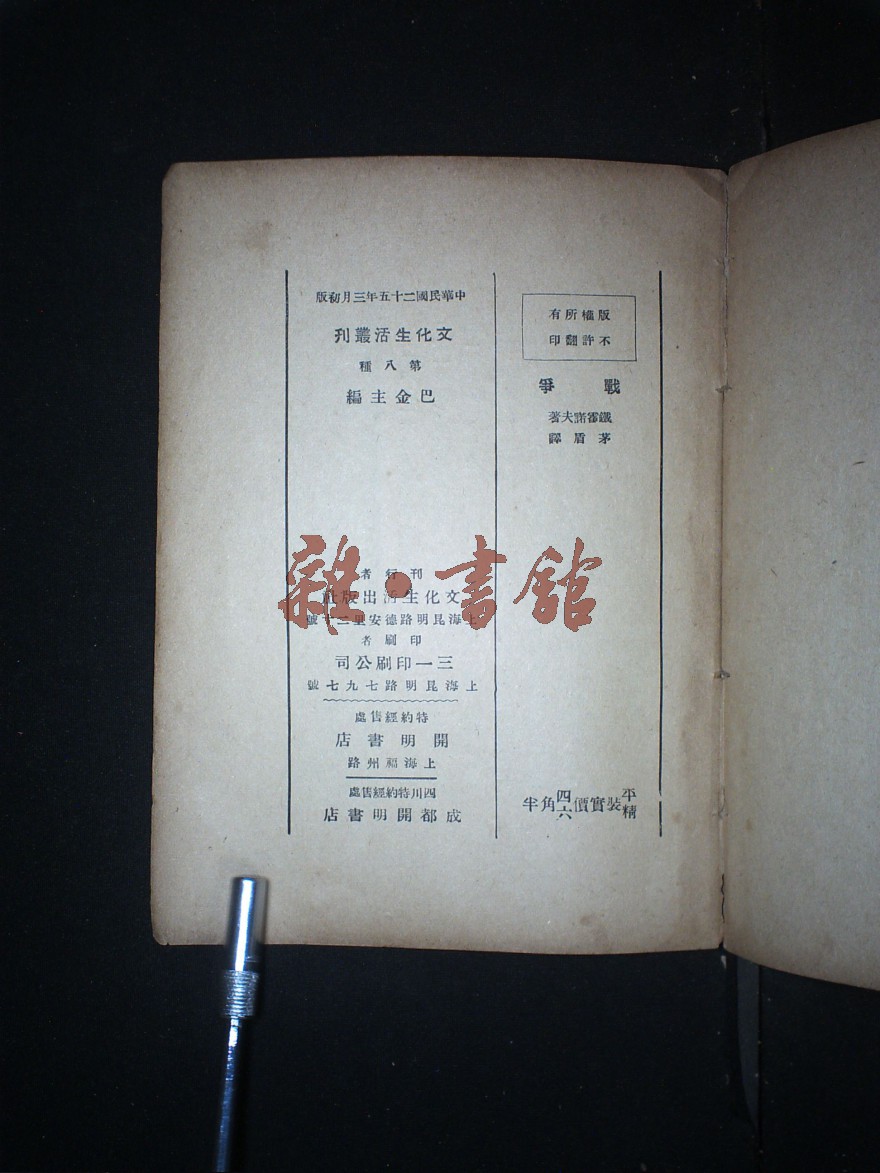 版權所有
不許翻印
戰爭
鐵霍諾夫著
茅盾譯
平精裝實價四六角半
中華民國二十五年三月初版
文化生活叢刊
第八種
巴金主編
刊行者
文化生活出版社
上海昆明路德安里二十號
印刷者
三一印刷公司
上海昆明路七九七號
特約經售處
開明書店
上海福州路
四川特約經售處
成都開明書店
雜·書館